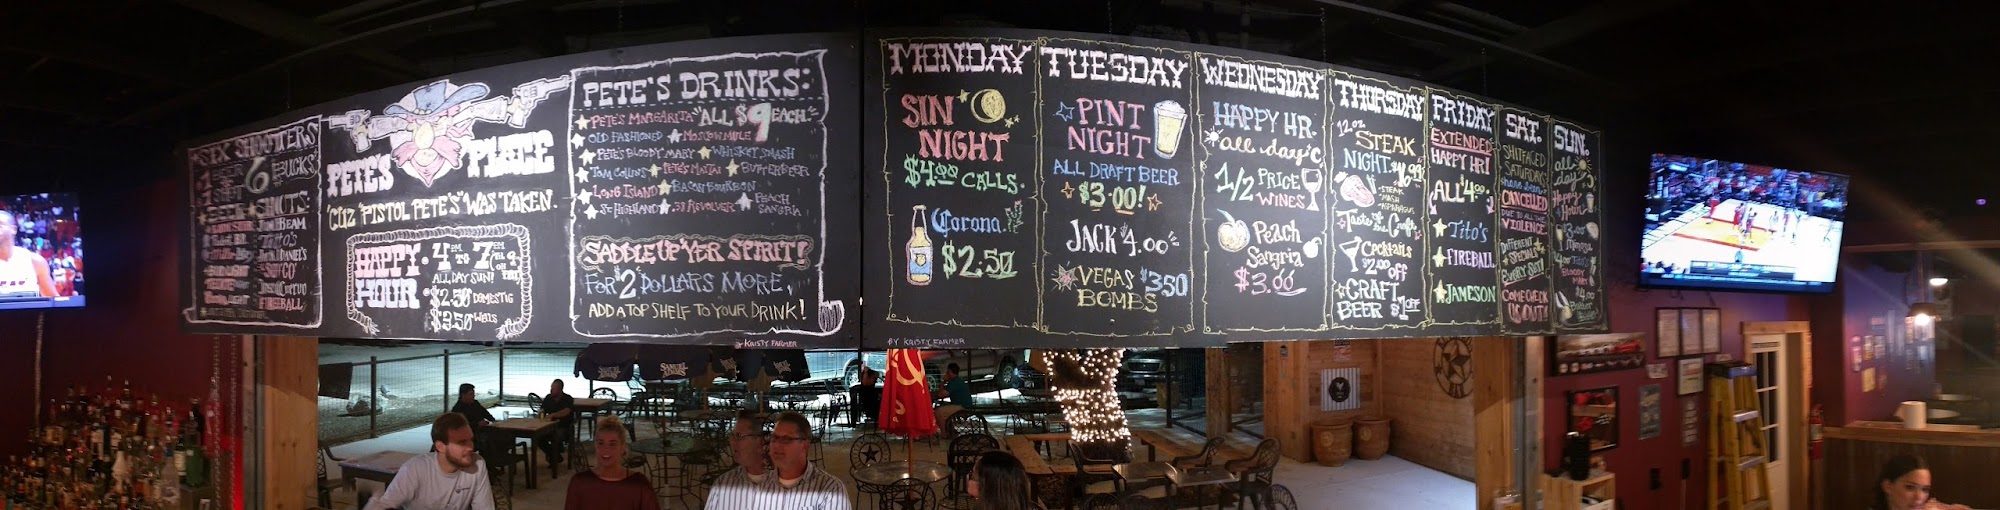 SIX SHOOTERS
1 BEER
1 SHOT
6 BUCKS
BEER
SHOTS:
JIM BEAM
TITO'S
JACK DANIEL'S
"SO CO"
JOSE CUERVO
FIREBALL
PETE'S PLACE
'CUZ "PISTOL PETE'S" WAS TAKEN.
HAPPY HOUR
4 PM TO 7 PM
ALL DAY SUN!
$2.50 DOMESTIC
$3.50 WELLS
PETE'S DRINKS:
PETE'S MARGARITA "ALL $9 EACH"
OLD FASHIONED MOSCOW MULE
PETE'S BLOODY MARY WHISKEY SMASH
TOM COLLINS PETE'S MAI TAI BUTTERBEER
LONG ISLAND BACON BOURBON PEACH SANGRIA
.38 REVOLVER
SADDLE UP YER SPIRIT!
FOR $2 DOLLARS MORE,
ADD A TOP SHELF TO YOUR DRINK!
BY KRISTY FARMER
MONDAY
SIN NIGHT
$4.00 CALLS.
Corona.
$2.50
TUESDAY
PINT NIGHT
ALL DRAFT BEER
$3.00!
JACK $4.00
VEGAS BOMBS $3.50
WEDNESDAY
HAPPY HR.
all day
1/2 PRICE WINES
Peach Sangria
$3.00
THURSDAY
12 oz.
STEAK NIGHT
STEAK
MASH
ASPARAGUS
Cocktails
$2.00 OFF
CRAFT BEER $1 OFF
FRIDAY
EXTENDED HAPPY HR!
ALL $4.00
Tito's
FIREBALL
JAMESON
SAT.
SHITFACED SATURDAYS
have been
CANCELLED
DUE TO ALL THE VIOLENCE
DIFFERENT SPECIALS EVERY SAT!
COME CHECK US OUT!
SUN.
all day
Happy Hour
BLOODY MARY
$4.00
BY KRISTY FARMER
SAMUEL ADAMS